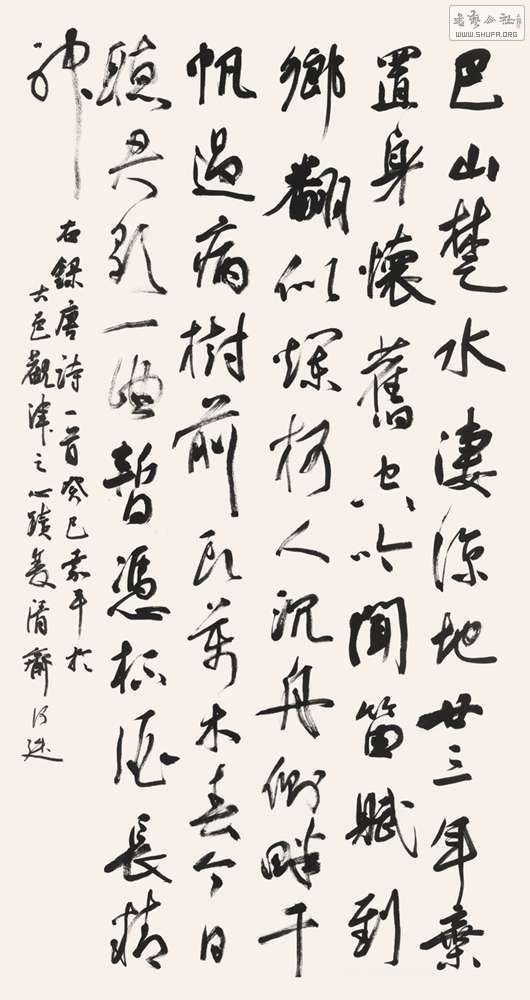 巴山楚水淒涼地廿三年棄
置身懷舊空吟聞笛賦到
鄉翻似爛柯人沉舟側畔千
帆過病樹前頭萬木春今日
聽君歌一曲暫憑杯酒長精
神
右錄唐詩一首癸巳嘉平於
古邑觀津之心蹟雙清齋
書藝公社
WWW.SHUFA.ORG